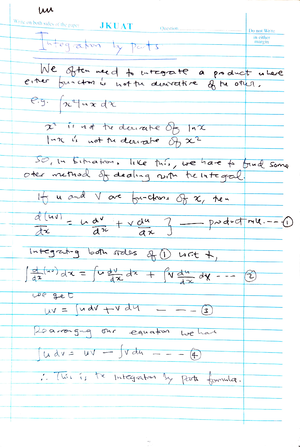 JKUAT
Integration by parts
We often need to integrate a product where
either function is not the derivative of the other.
e.g. ∫x² ln x dx
x² is not the derivative of ln x
ln x is not the derivative of x²
So, in situations like this, we have to find some
other method of dealing with the integral.
If u and v are functions of x, then
d(uv)/dx = u dv/dx + v du/dx } —— product rule --- ①
Integrating both sides of ① wrt x,
∫ d/dx (uv) dx = ∫u dv/dx dx + ∫v du/dx dx --- ②
we get
uv = ∫udv + ∫v du --- ③
Rearranging our equation we have
∫u dv = uv - ∫v du --- ④
∴ This is the integration by parts formula.